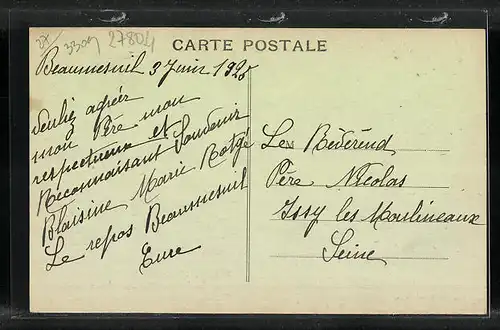 27804
CARTE POSTALE
Beaumesnil 3 Juin 1925
Veuillez agréer
mon Père mon
respectueux et
Reconnaissant Souvenir
Blaisine Marie
Le repos Beaumesnil
Eure
Le Révérend
Père Nicolas
Issy les Moulineaux
Seine